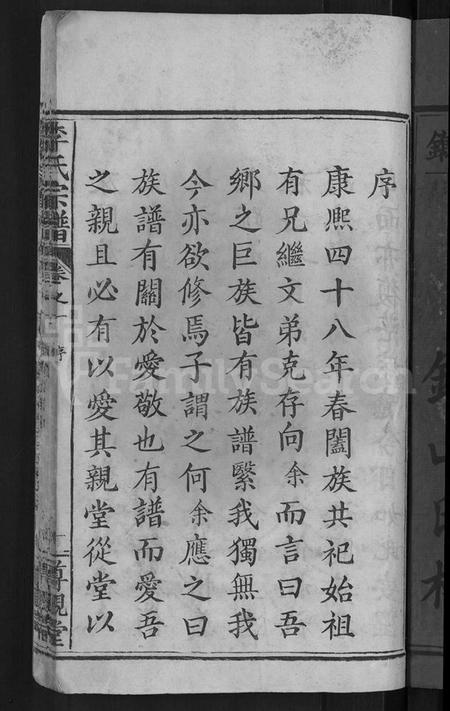 序
康熙四十八年春闔族共祀始祖
有兄繼文弟克存向余而言曰吾
鄉之巨族皆有族譜緊我獨無我
今亦欲修焉子謂之何余應之曰
族譜有關於愛敬也有譜而愛吾
之親且必有以愛其親堂從堂以
李氏宗譜
卷之一
序
尊親堂
FamilySearch